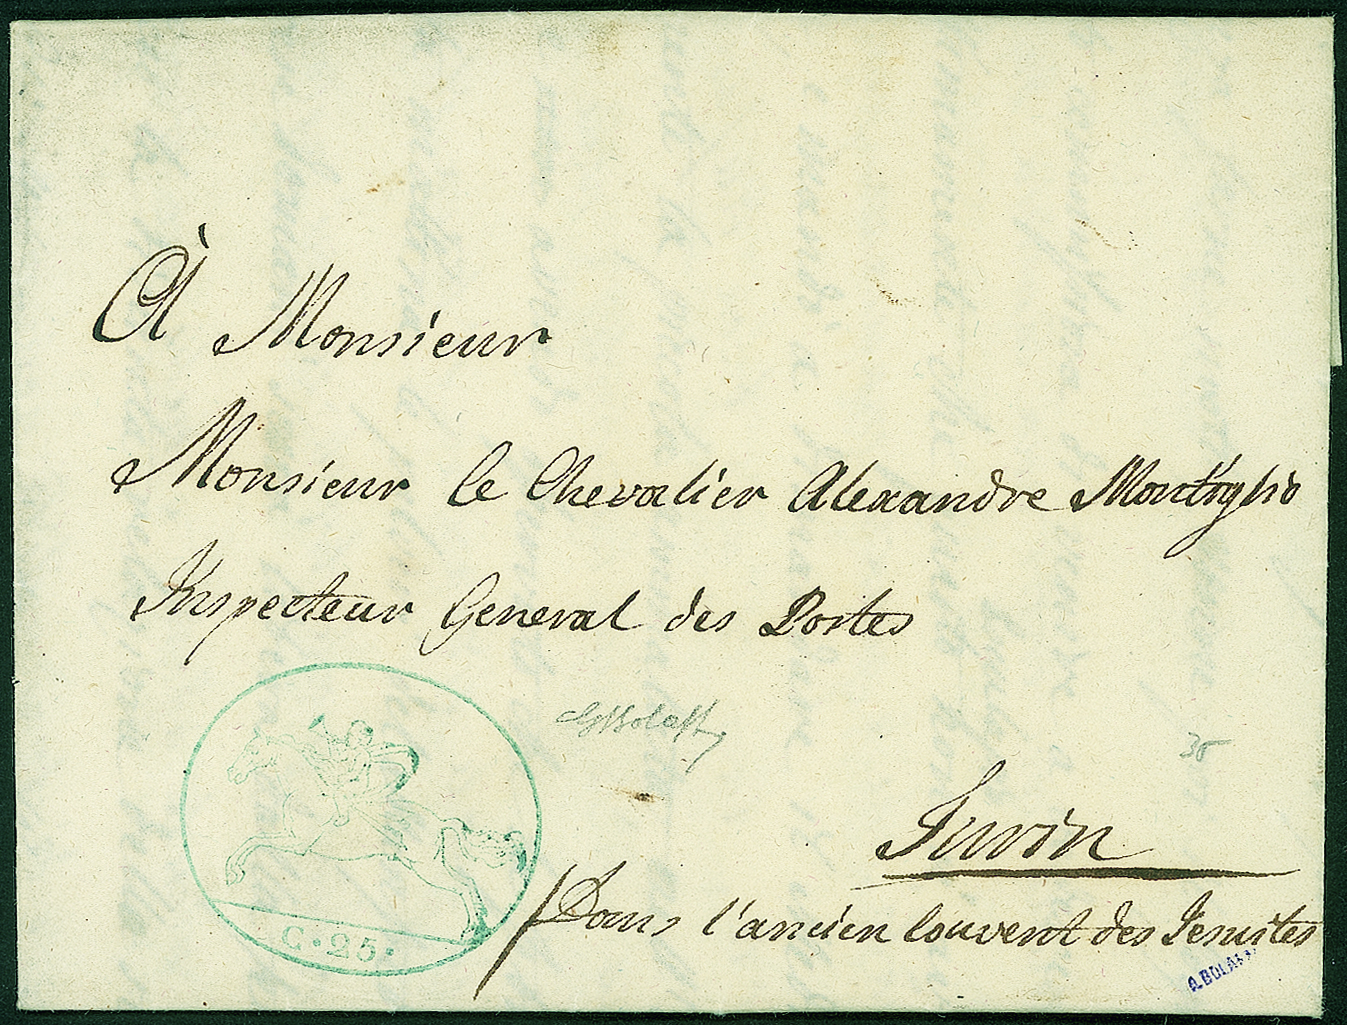 À Monsieur
Monsieur le Chevalier Alexandre
Inspecteur General des Postes
35
Turin
Dans l'ancien Couvent des Jesuites
C. 25.